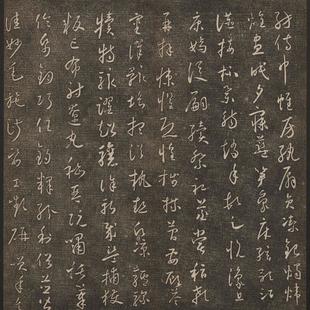 紡侍巾帷房紈扇員潔銀燭煒
煌晝眠夕寐藍笋象床弦歌酒
讌接杯舉觴矯手頓足悅豫且
康嫡後嗣續祭祀蒸嘗稽顙
再拜悚懼恐惶牋牒簡要顧答
審詳骸垢想浴執熱願涼驢騾
犢特駭躍超驤誅斬賊盜捕獲
叛亡布射遼丸嵇琴阮嘯恬筆
倫紙鈞巧任釣釋紛利俗並皆
佳妙毛施淑姿工顰妍笑年矢